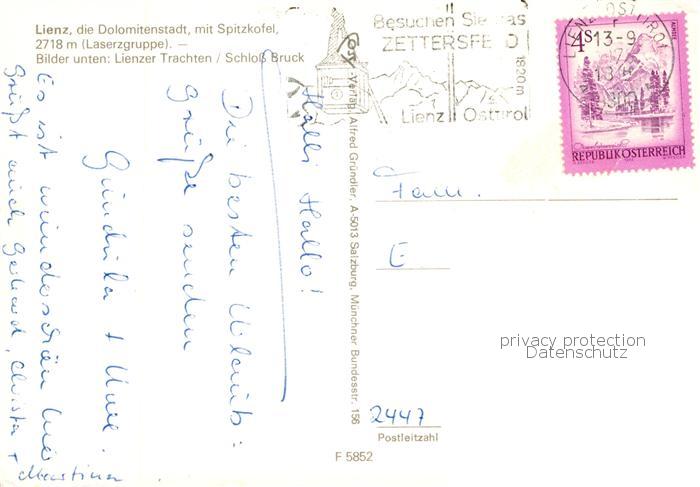 Lienz, die Dolomitenstadt, mit Spitzkofel,
2718 m (Laserzgruppe). —
Bilder unten: Lienzer Trachten / Schloß Bruck
Besuchen Sie das
ZETTERSFELD
1820m
Lienz Osttirol
13-9
4S
REPUBLIK ÖSTERREICH
Verlag Alfred Gründler, A-5013 Salzburg, Münchner Bundesstr. 156
Halli Hallo!
Die besten Urlaubs:
Grüße senden
Es ist wunderschön hier
Grüßt auch Gerhard, Christa +
Martina
Fam.
E
privacy protection
Datenschutz
2447
Postleitzahl
F 5852